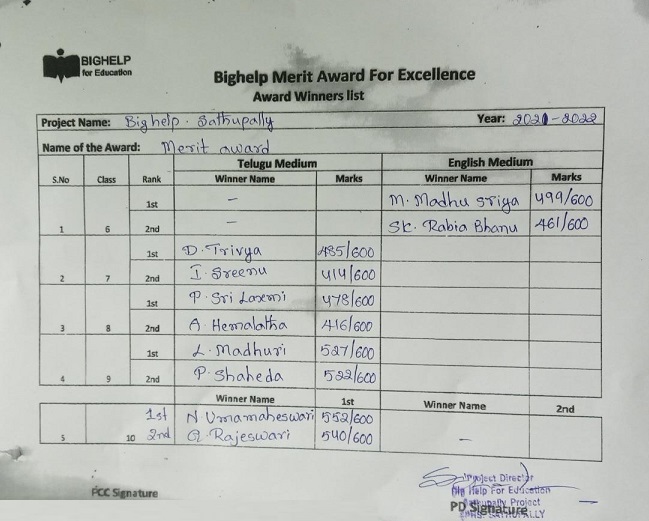 BIGHELP
for Education
Bighelp Merit Award For Excellence
Award Winners list
Project Name: Bighelp. Sathupally Year: 2021-2022
Name of the Award: Merit award
Telugu Medium English Medium
S.No Class Rank Winner Name Marks Winner Name Marks
1st – M. Madhu sriya 499/600
1 6 2nd – Sk. Rabia Bhanu 461/600
1st D. Trivya 485/600
2 7 2nd I. Sreenu 414/600
1st P. Sri Laxmi 478/600
3 8 2nd A. Hemalatha 416/600
1st L. Madhuri 527/600
4 9 2nd P. Shaheda 522/600
Winner Name 1st Winner Name 2nd
1st N Umamaheswari 552/600
5 10 2nd G. Rajeswari 540/600 –
Project Director
Big Help For Education
Sathupally Project
PCC Signature PD Signature
SATHUPALLY